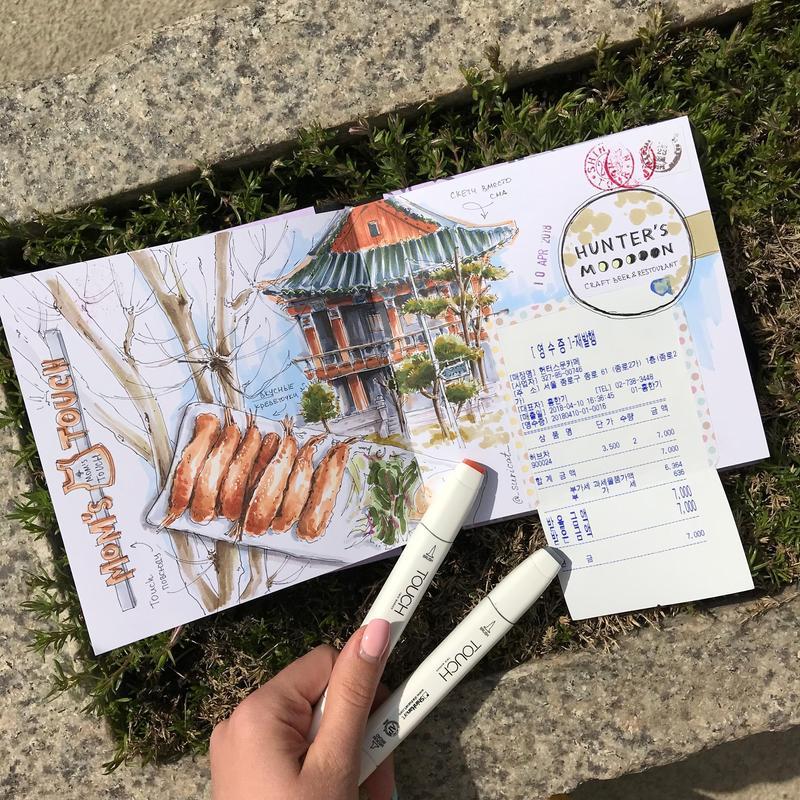 СКЕТЧ ВМЕСТО
СМА
10 APR 2018
HUNTER'S
MOOOOON
CRAFT BEER & RESTAURANT
MOM'S TOUCH
MOM'S
TOUCH
Touch
повсюду
ВКУСНЫЕ
креветочки
[영수증]-재발행
[매장명] 헌터스문카페
[사업자] 327-85-00746
[주 소] 서울 종로구 종로 61 (종로2가) 1층(종로2
가)
[대표자] 홍한기 [TEL] 02-738-3448
[매출일] 2018-04-10 16:36:45 01-홍한기
[영수증] 20180410-01-0016
상 품 명 단 가 수량 금 액
허브차 3,500 2 7,000
900024
합 계 금 액 7,000
부가세 과세물품가액 6,364
부 가 세 636
7,000
7,000
금 7,000
TOUCH
TOUCH
ShinHan